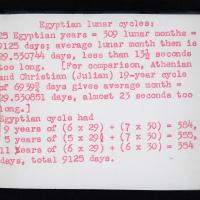 Egyptian lunar cycles:
25 Egyptian years = 309 lunar months =
9125 days; average lunar month then is
29.530744 days, less than 13½ seconds
too long.  [For comparison, Athenian
and Christian (Julian) 19-year cycle
of 6939¾ days gives average month =
29.530851 days, almost 23 seconds too
long.]
Egyptian cycle had
9 years of (6 x 29) + (7 x 30) = 384,
5 years of (5 x 29) + (7 x 30) = 355,
11 years of (6 x 29) + (6 x 30) = 354
days, total 9125 days.